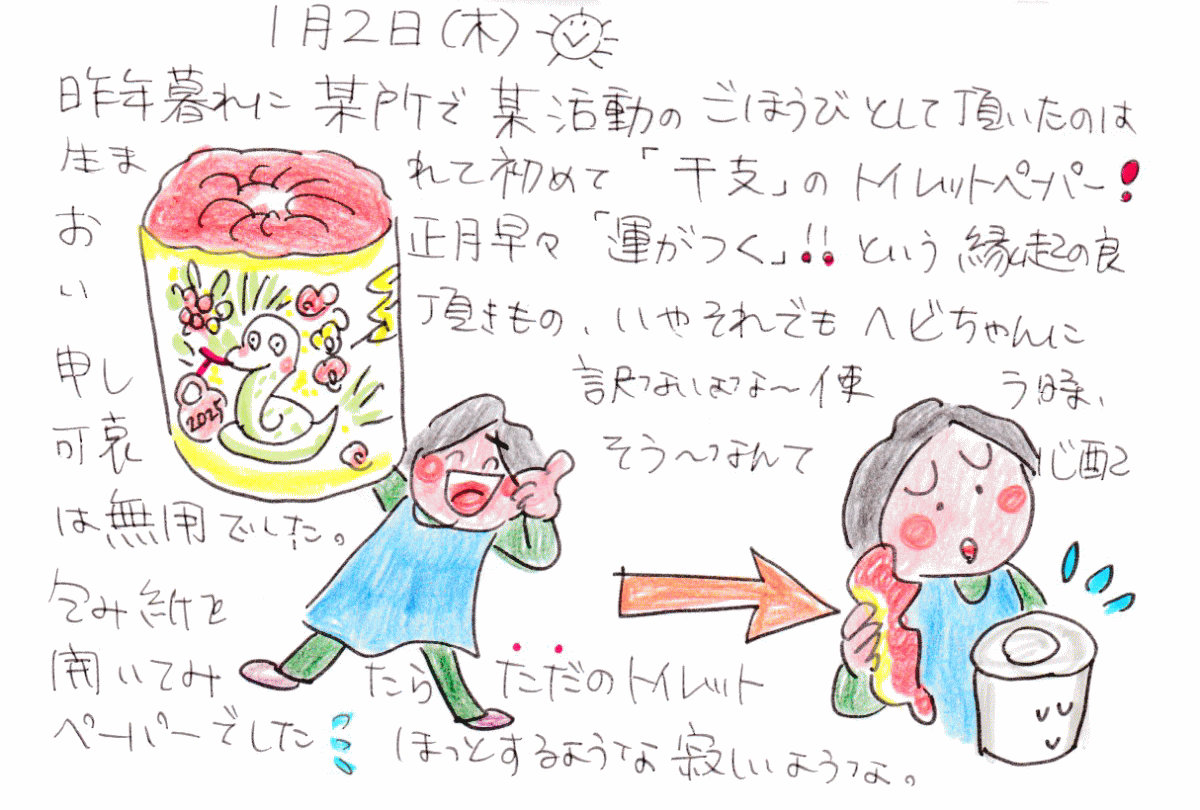 1月2日(木)
昨年暮れに 某所で 某活動の ごほうびとして頂いたのは
生まれて初めて「干支」の トイレットペーパー!
お正月早々「運がつく」!! という 縁起の良
い頂きもの、いやそれでも ヘビちゃんに
申し訳ないよな〜使う時、
可哀そう〜なんて心配
は無用でした。
包み紙を
開いてみたら ただのトイレット
ペーパーでした ほっとするような寂しいような。
2025